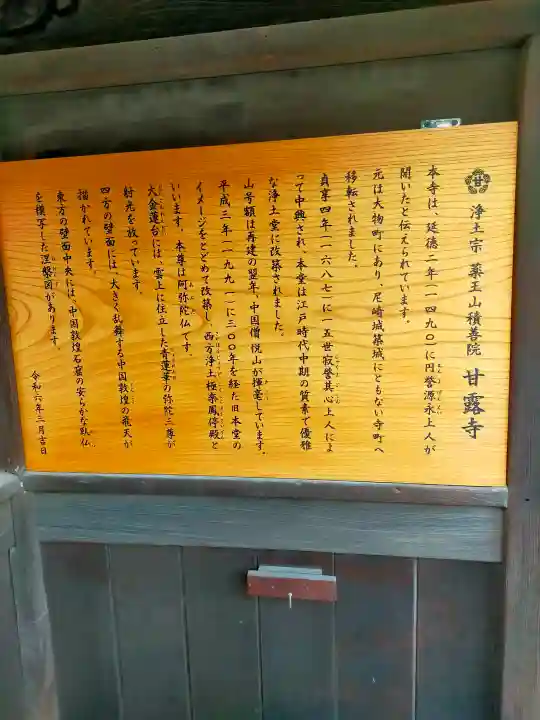 甘
浄土宗 薬王山積善院 甘露寺
本寺は、延徳二年(一四九〇)に円誉源永上人が
開いたと伝えられています。
元は大物町にあり、尼崎城築城にともない寺町へ
移転されました。
貞享四年(一六八七)に一五世寂誉其心上人によ
って中興され、本堂は江戸時代中期の質素で優雅
な浄土堂に改築されました。
山号額は再建の翌年、中国僧悦山が揮毫しています。
平成三年(一九九一)に三〇〇年を経た旧本堂の
イメージをとどめて改築し、西方浄土極楽鳳停殿と
いいます。本尊は阿弥陀仏です。
大金蓮台には、雲上に住立した青蓮華の弥陀三尊が
射光を放っています。
四方の壁面には、大きく乱舞する中国敦煌の飛天が
描かれています。
東方の壁面中央には、中国敦煌石窟の安らかな臥仏
を模写した涅槃図があります。
令和六年三月吉日